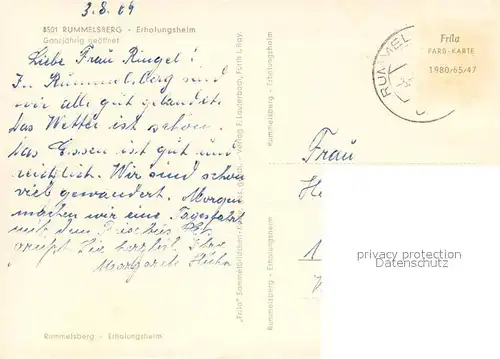 3.8.69
8501 RUMMELSBERG - Erholungsheim
Ganzjährig geöffnet
Liebe Frau Ringel!
In Rummelsberg sind
wir alle gut gelandet.
Das Wetter ist schön.
Das Essen ist gut und
reichlich. Wir sind schon
viel gewandert. Morgen
machen wir eine Tagesfahrt
mit dem
grüßt Sie herzlich Ihre
Margarete
Rummelsberg - Erholungsheim
"Frila" Verlag E. Lauterbach, Fürth i. Bay.
Rummelsberg - Erholungsheim
Rummelsberg - Erholungsheim
RUMMEL
Frila
FARB-KARTE
1980/65/47
Frau
privacy protection
Datenschutz